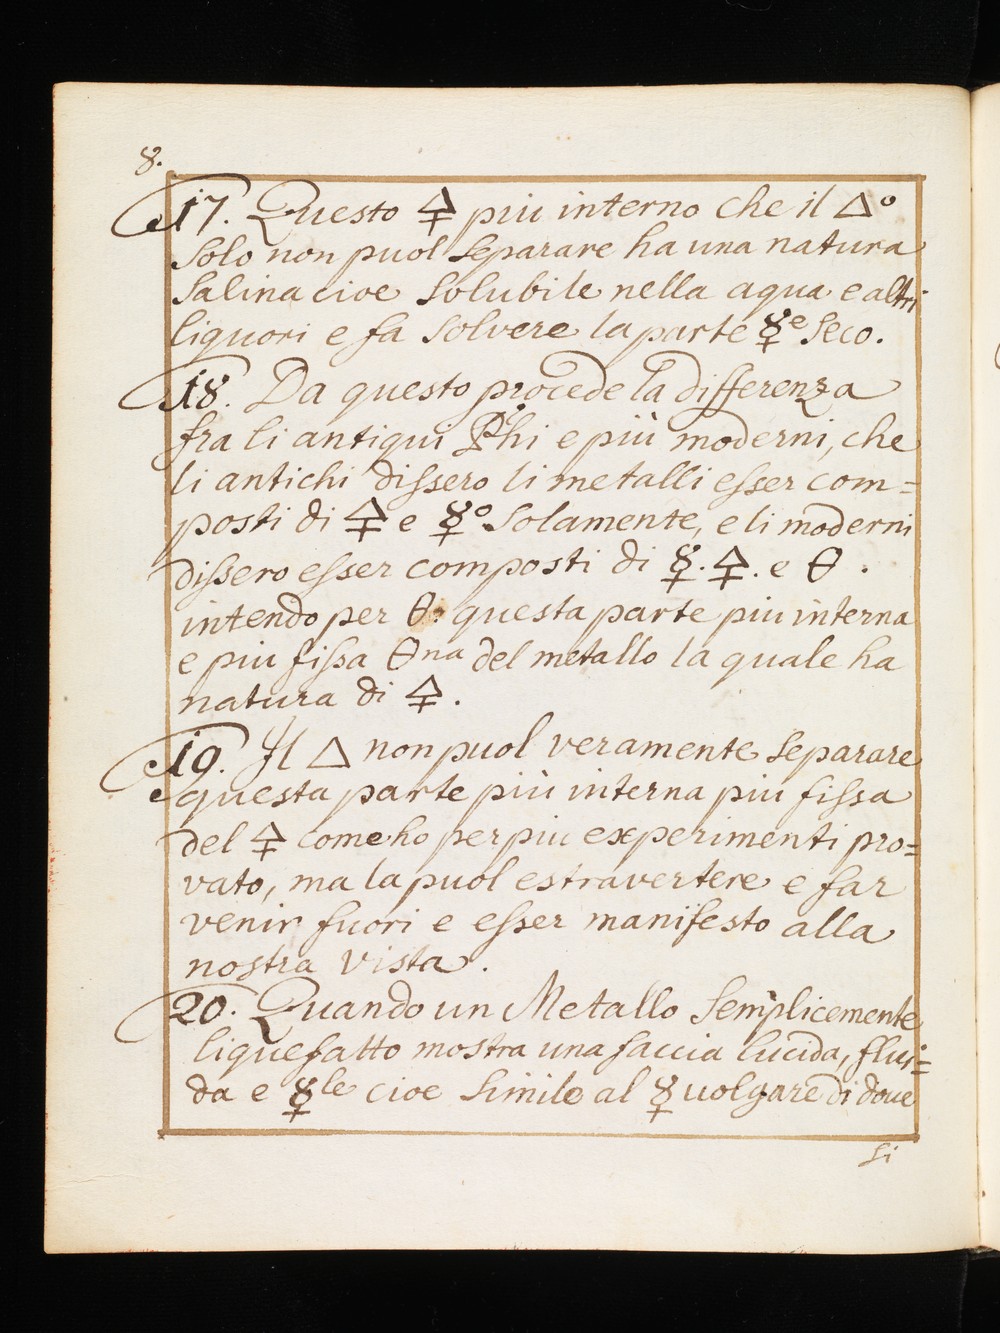 8.
17. Questo 🜍 più interno che il 🜂º
solo non puol separare ha una natura
salina cioe solubile nella aqua e altri
liquori e fa solvere la parte ☿e seco.
18. Da questo procede la differenza
fra li antiqui Phi e più moderni, che
li antichi dissero li metalli esser com=
posti di 🜍 e ☿º solamente, e li moderni
dissero esser composti di ☿. 🜍. e θ.
intendo per θ: questa parte piu interna
e piu fissa θna del metallo la quale ha
natura di 🜍.
19. Il 🜂 non puol veramente separare
questa parte più interna piu fissa
del 🜍 come ho per piu experimenti pro=
vato, ma la puol estravertere e far
venir fuori e esser manifesto alla
nostra vista.
20. Quando un Metallo semplicemente
liquefatto mostra una faccia lucida, flui=
da e ☿le cioe simile al ☿ uolgare di doue
si